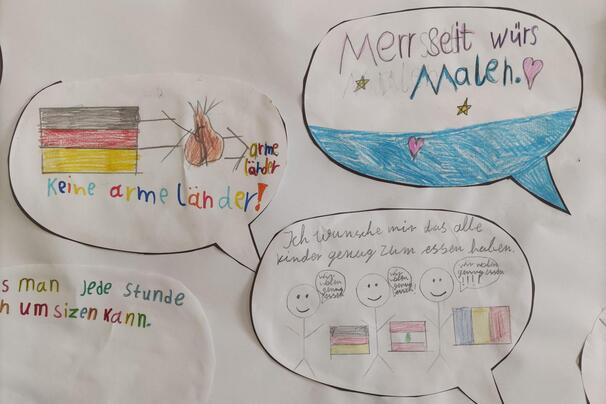 Merr Seit würs
Malen.
arme
länder
Keine arme länder!
Ich wünsche mir das alle
kinder genug zum essen haben.
wir
wollen
genug
essen
wir
wollen
genug
essen
wir wollen
genug essen
!!!!
s man jede Stunde
h um sizen kann.